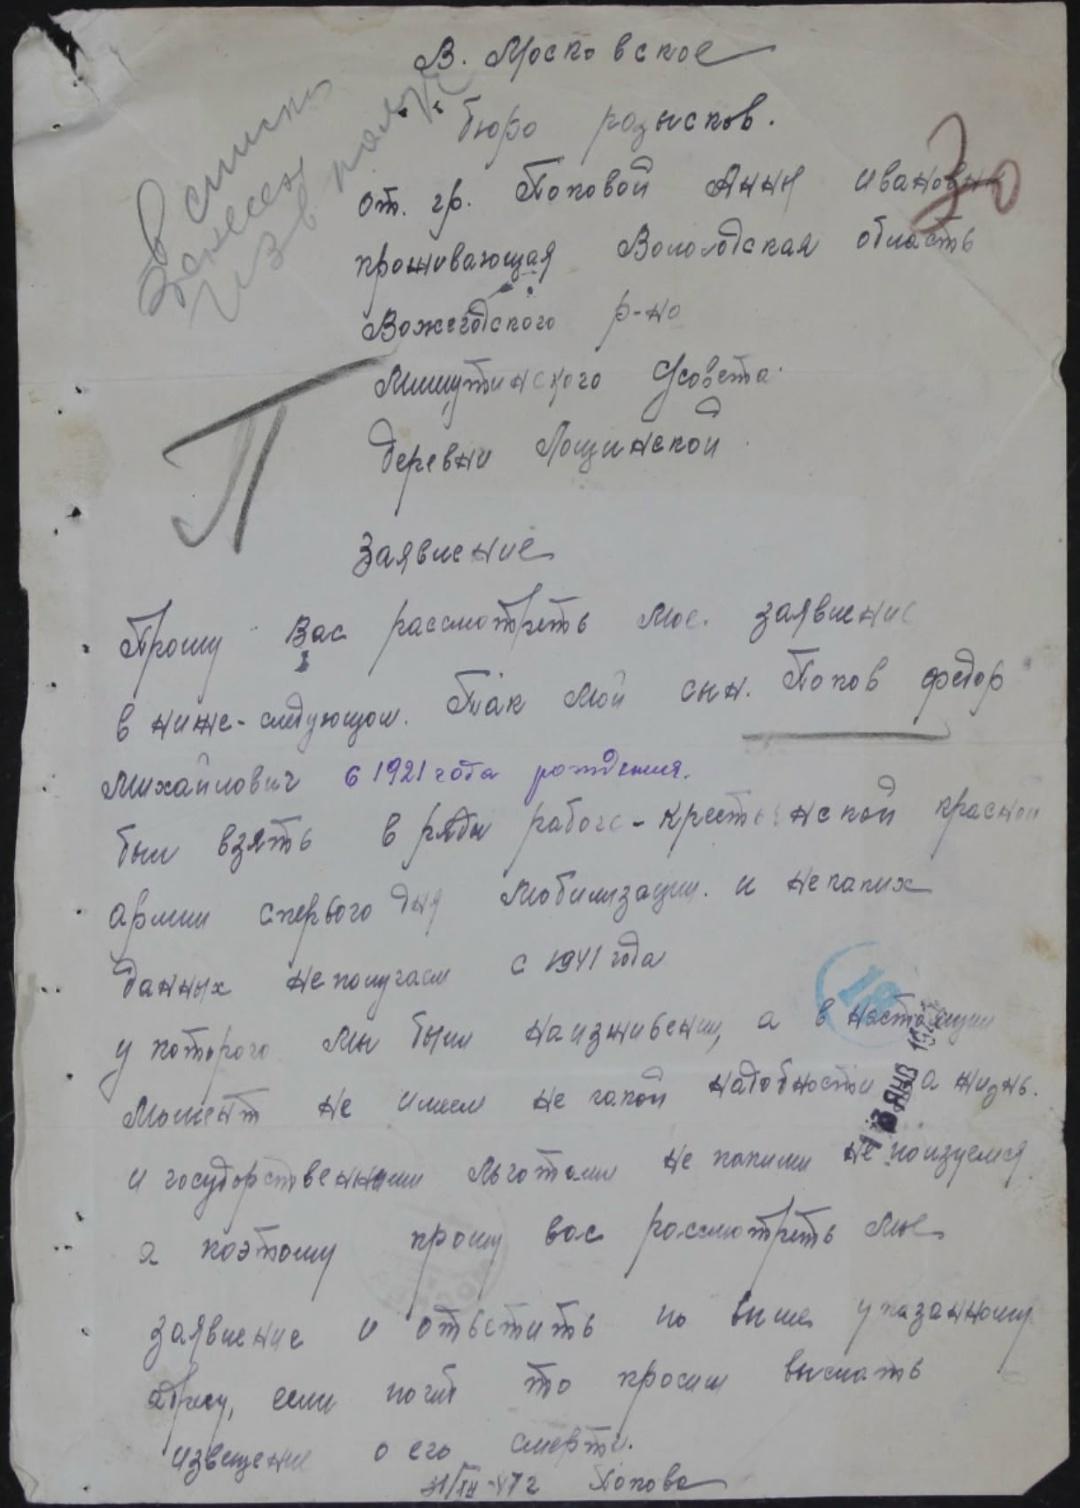 В. Московское
бюро розысков.
от. гр. Поповой Анны Ивановны
30
проживающая Вологодская область
Вожегодского р-на
Мишутинского С/совета.
деревни Лощинской
в списки
занесен
изв
П
Заявление
Прошу Вас рассмотреть мое. заявление
в ниже-следующом. Так мой сын. Попов Федор
Михайлович с 1921 года рождения.
был взять в ряды рабоче-крестьянской красной
армии с первого дня мобилизации. и не каких
данных не получаем с 1941 года
у которого мы были на изживении, а в настоящии
18
момент не имеем не какой надобности на жизнь.
ЯНВ
и государственными льготами не какими не поизуемся
а поэтому прошу вас рассмотреть мое
заявление и ответить по выше указанному
адресу, если погиб то просим выслать
извещение о его смерти.
Попова